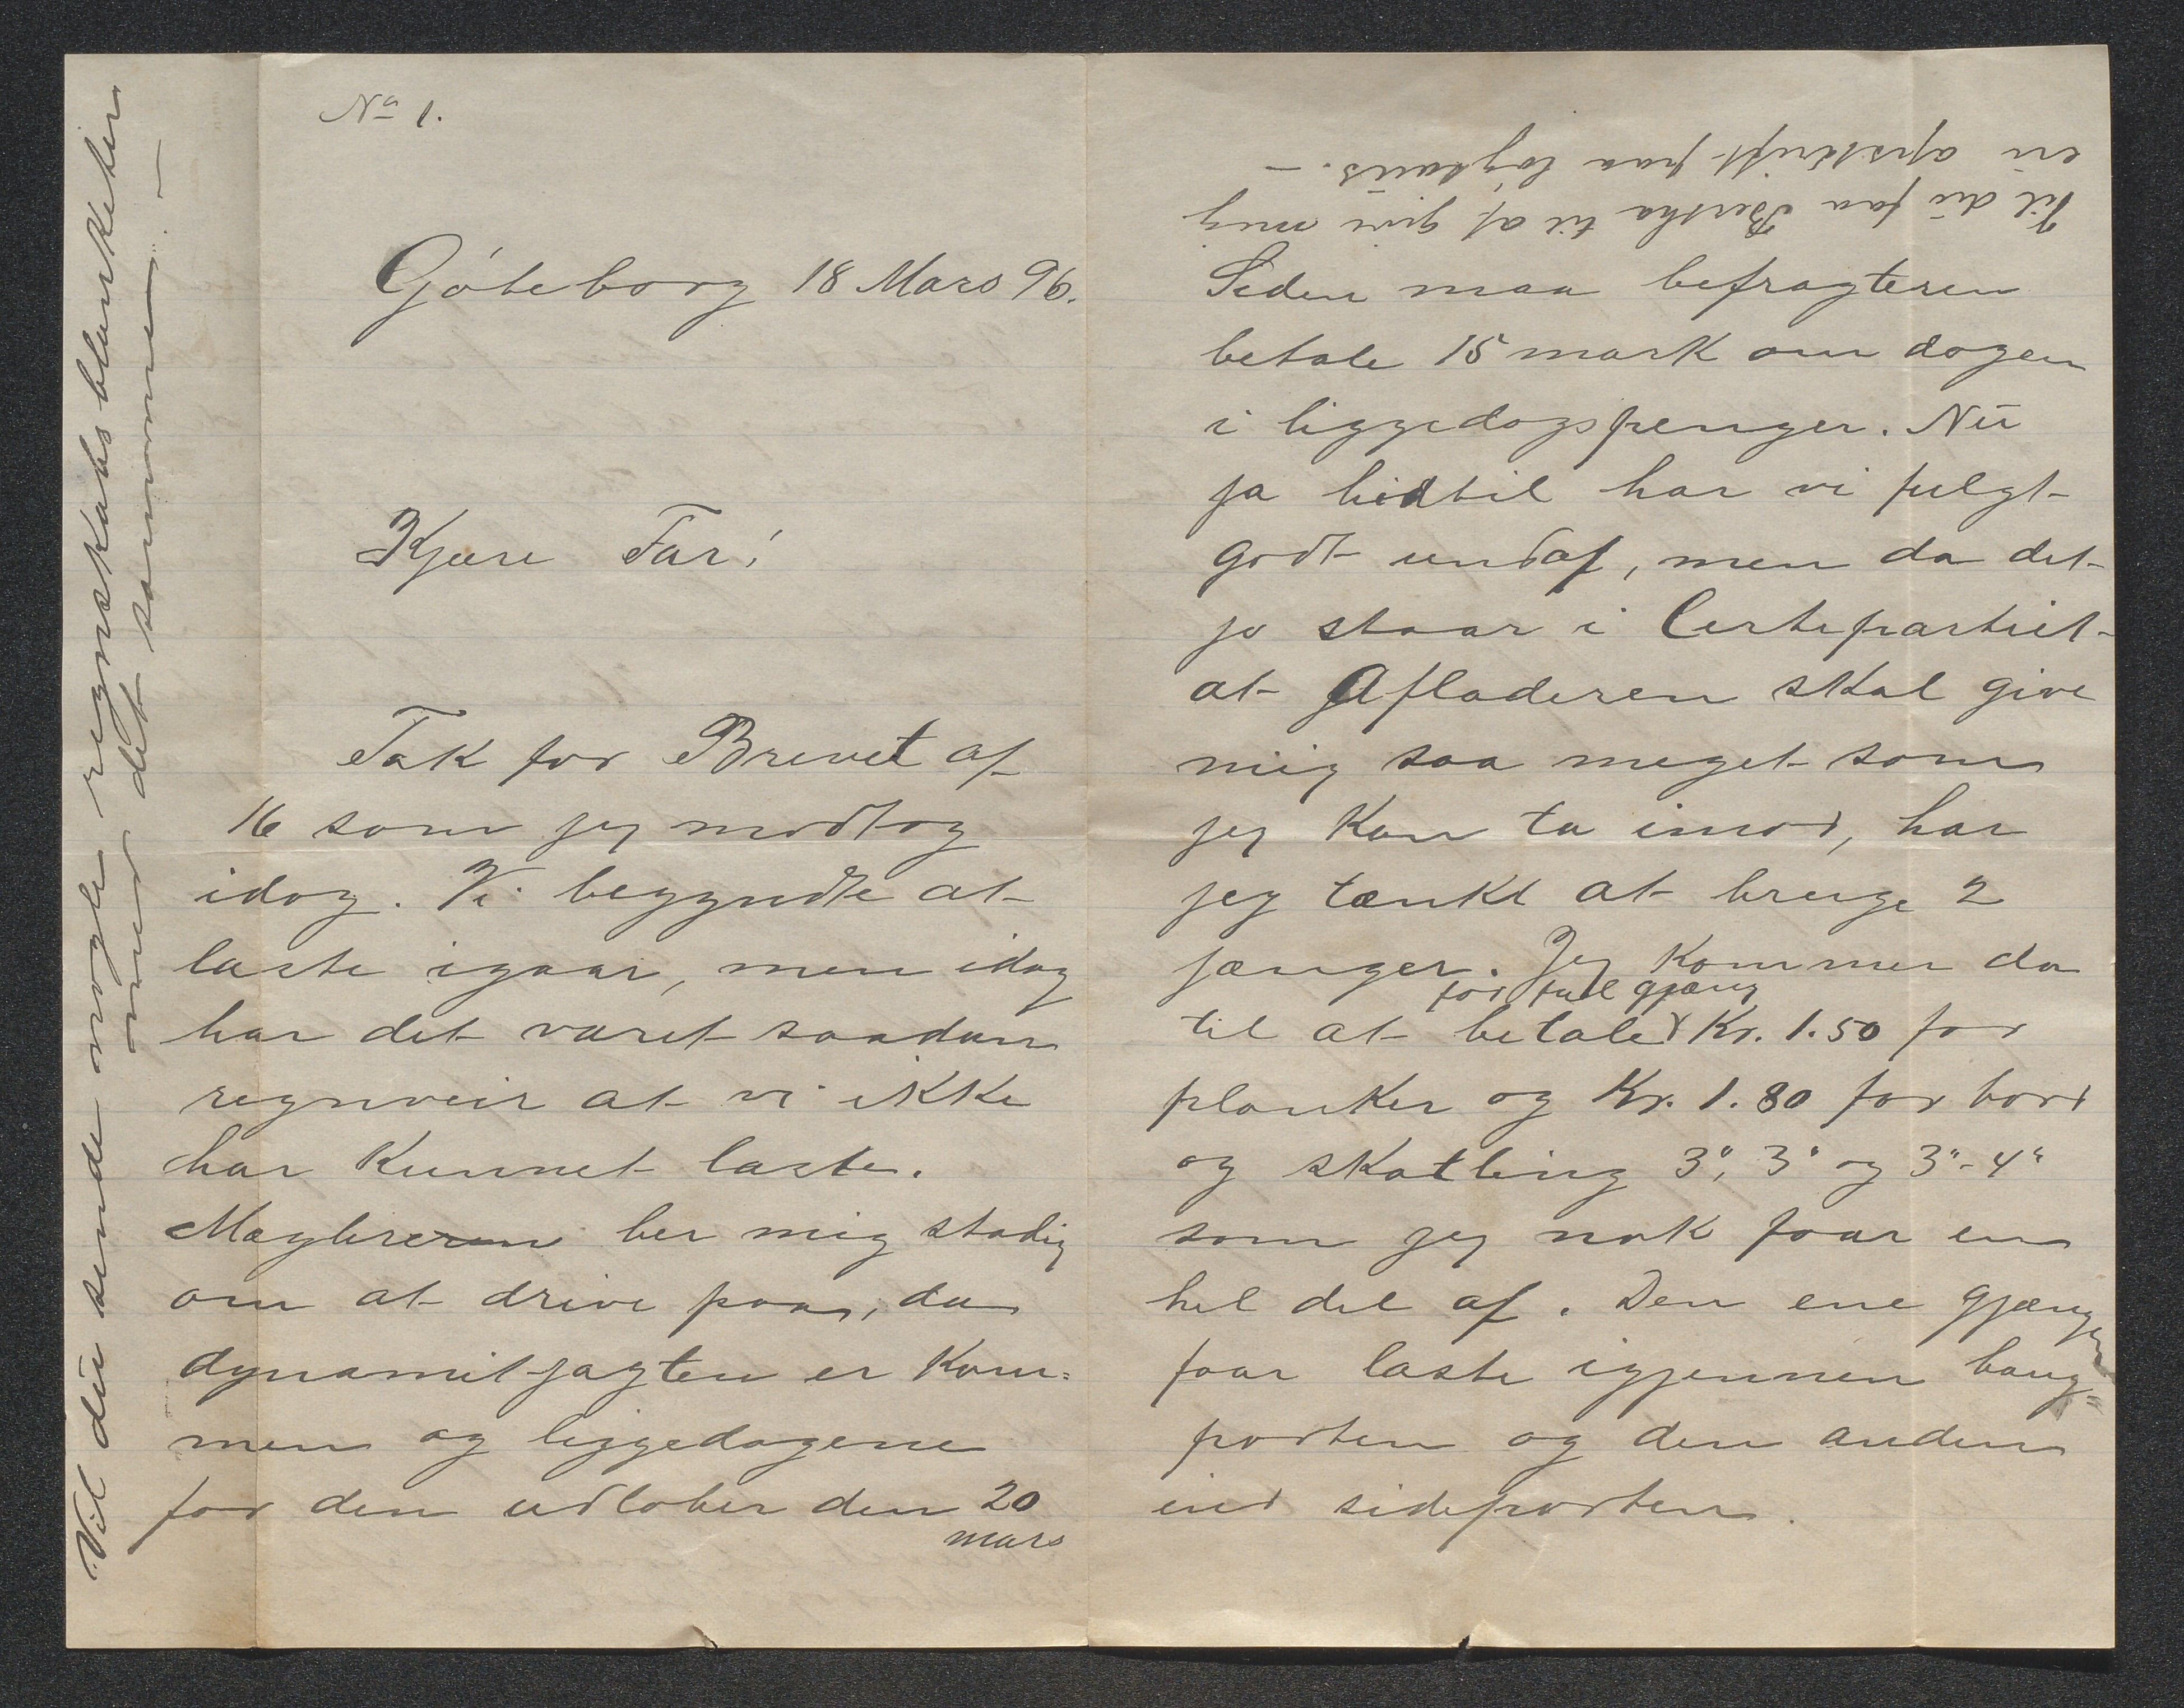 No 1.
Göteborg 18 Mars 96.
Kjære Far!
Tak for Brevet af
16 som jeg modtog
idag. Vi begyndte at
laste igaar, men idag
har det været saadan
regnveir at vi ikke
har kunnet laste.
Mægleren ber mig stadig
om at drive paa, da
dynamitjagten er kom=
men og liggedagene
for den udløber den 20
mars
Siden maa befragteren
betale 15 mark om dagen
i liggedagspenger. Nu
ja hidtil har vi fulgt
godt undaf, men da det
jo staar i Certepartiet
at Afladeren skal give
mig saa meget som
jeg kan ta imod, har
jeg tænkt at bruge 2
gjænger. Jeg kommer da
for full gjæng
til at betale Kr. 1.50 for
planker og Kr. 1.80 for bord
og skatling 3", 3" og 3"-4"
som jeg nok faar en
hel del af. Den ene gjængen
faar laste igjennem baug=
porten og den anden
ind sideporten.
Vil du sende nogle regnskabs blanketter
med det samme. —
Vil du faa Bertha til at give mig
en afskrift paa